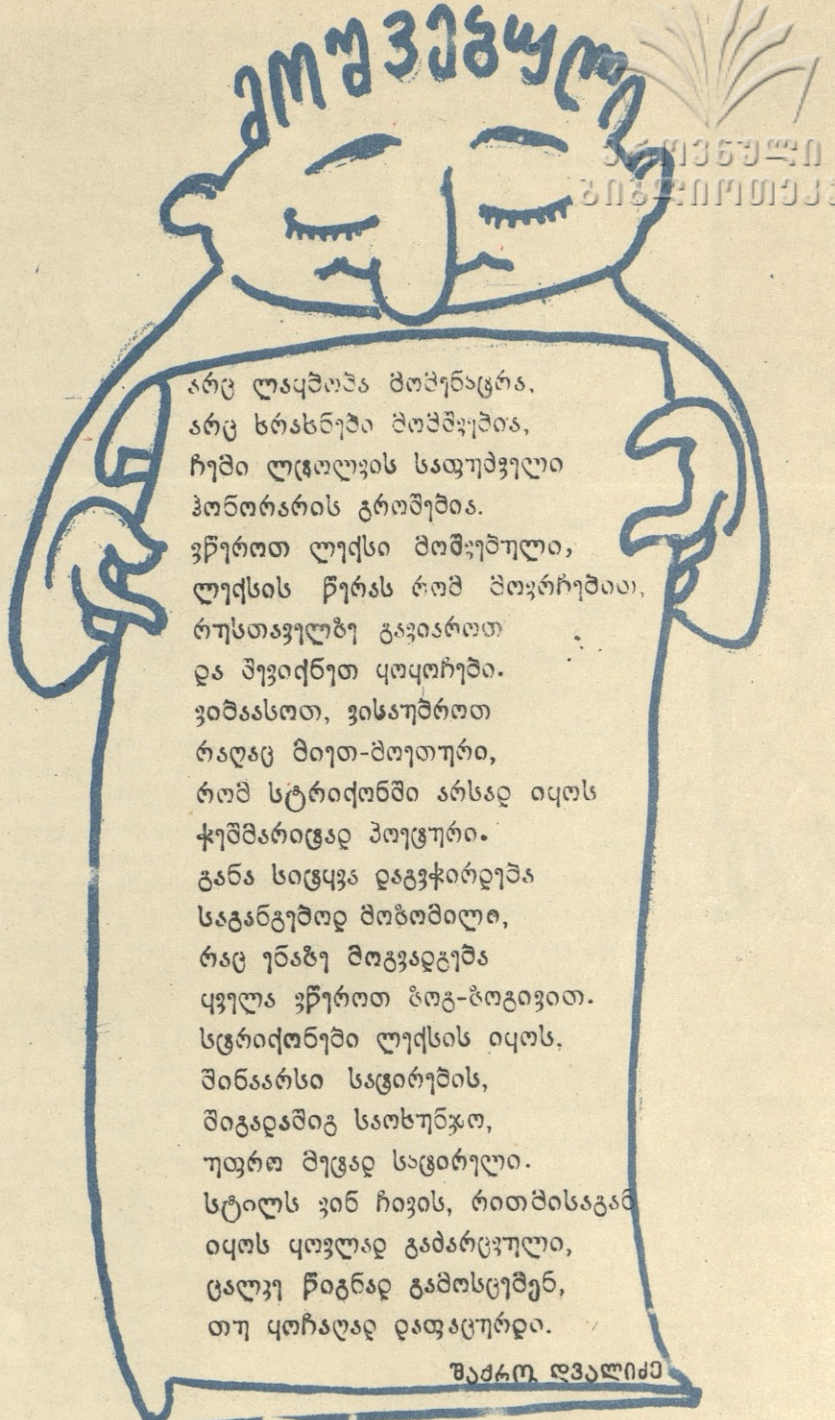 მოშვებული
ეროვნული
ბიბლიოთეკა
არც ლაყბობა მომენატრა,
არც ხრახნები მომშვებია,
ჩემი ლტოლვის საფუძველი
ჰონორარის გროშებია.
ვწეროთ ლექსი მოშვებული,
ლექსის წერას რომ მოვრჩებით,
რუსთაველზე გავიაროთ
და შევიქნეთ ყოყოჩები.
ვიმაასოთ, ვისაუბროთ
რაღაც მიეთ-მოეთური,
რომ სტრიქონში არსად იყოს
ჭეშმარიტად პოეტური.
განა სიტყვა დაგვჭირდება
საგანგებოდ მოზომილი,
რაც ენაზე მოგვადგება
ყველა ვწეროთ ზოგ-ზოგივით.
სტრიქონები ლექსის იყოს,
შინაარსი სატირების,
შიგადაშიგ საოხუნჯო,
უფრო მეტად სატირელი.
სტილს ვინ ჩივის, რითმისაგან
იყოს ყოვლად გაძარცვული,
ცალკე წიგნად გამოსცემენ,
თუ ყოჩაღად დაფაცურდი.
შაქრო დვალიძე